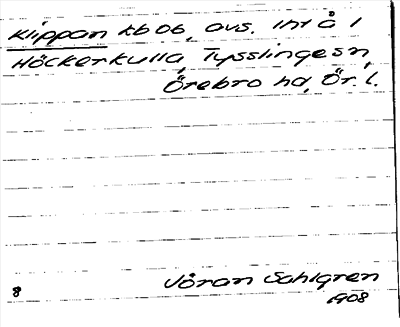 Klippan tb 06, avs. int å i
Höckerkulla, Tysslinge sn,
Örebro hd, Ör. l.
Jöran Sahlgren
8
1908